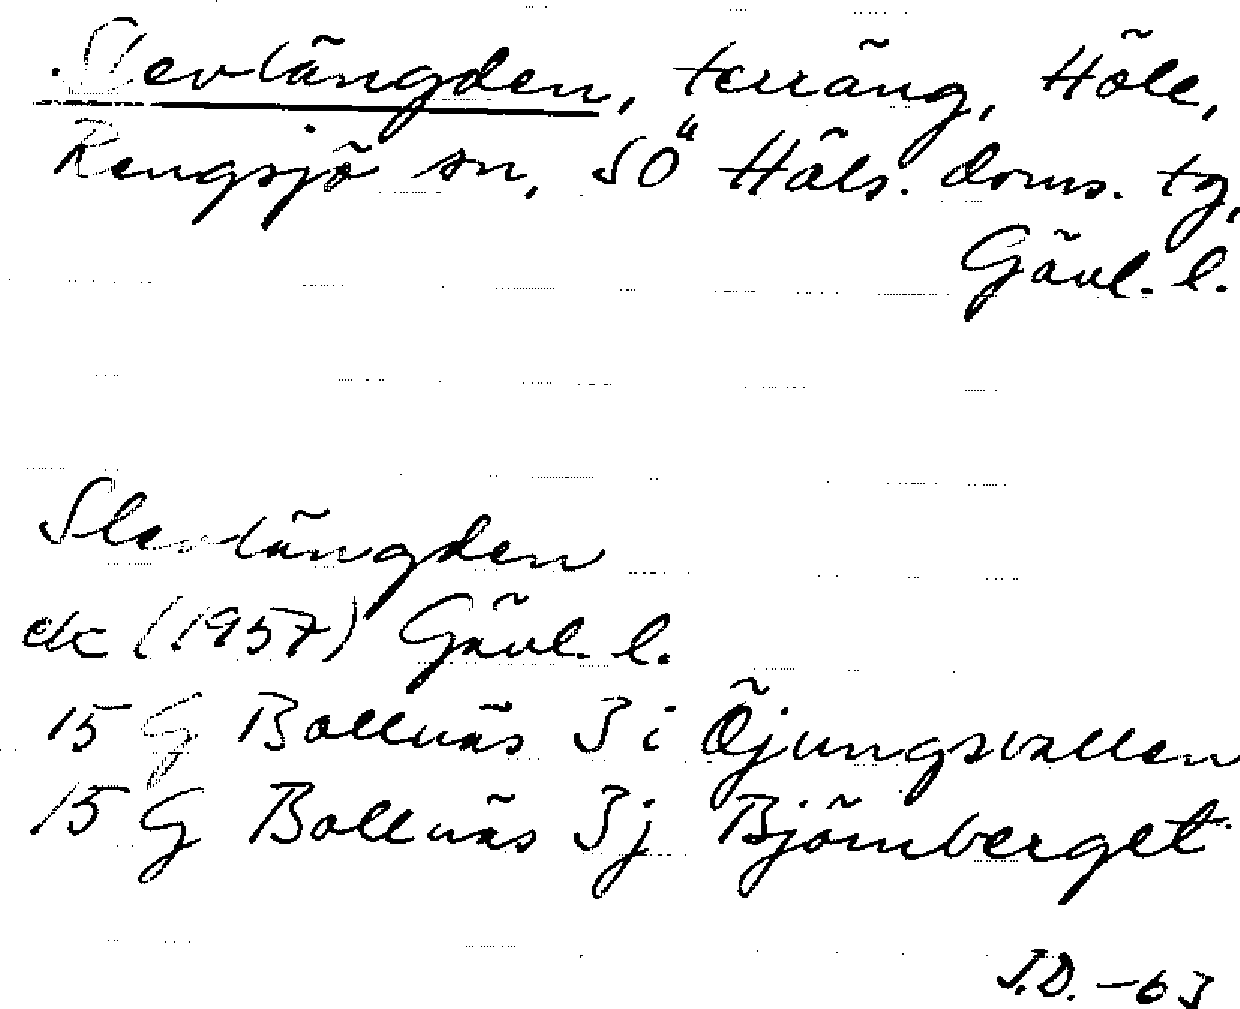 Slevlängden, terräng, Höle,
Rengsjö sn, SÖ Häls. doms. tg,
Gävl. l.
Slevlängden
ek (1957) Gävl. l.
15 G Bollnäs 3 i Öjungsvallen
15 G Bollnäs 3 j Björnberget
J.D. -63